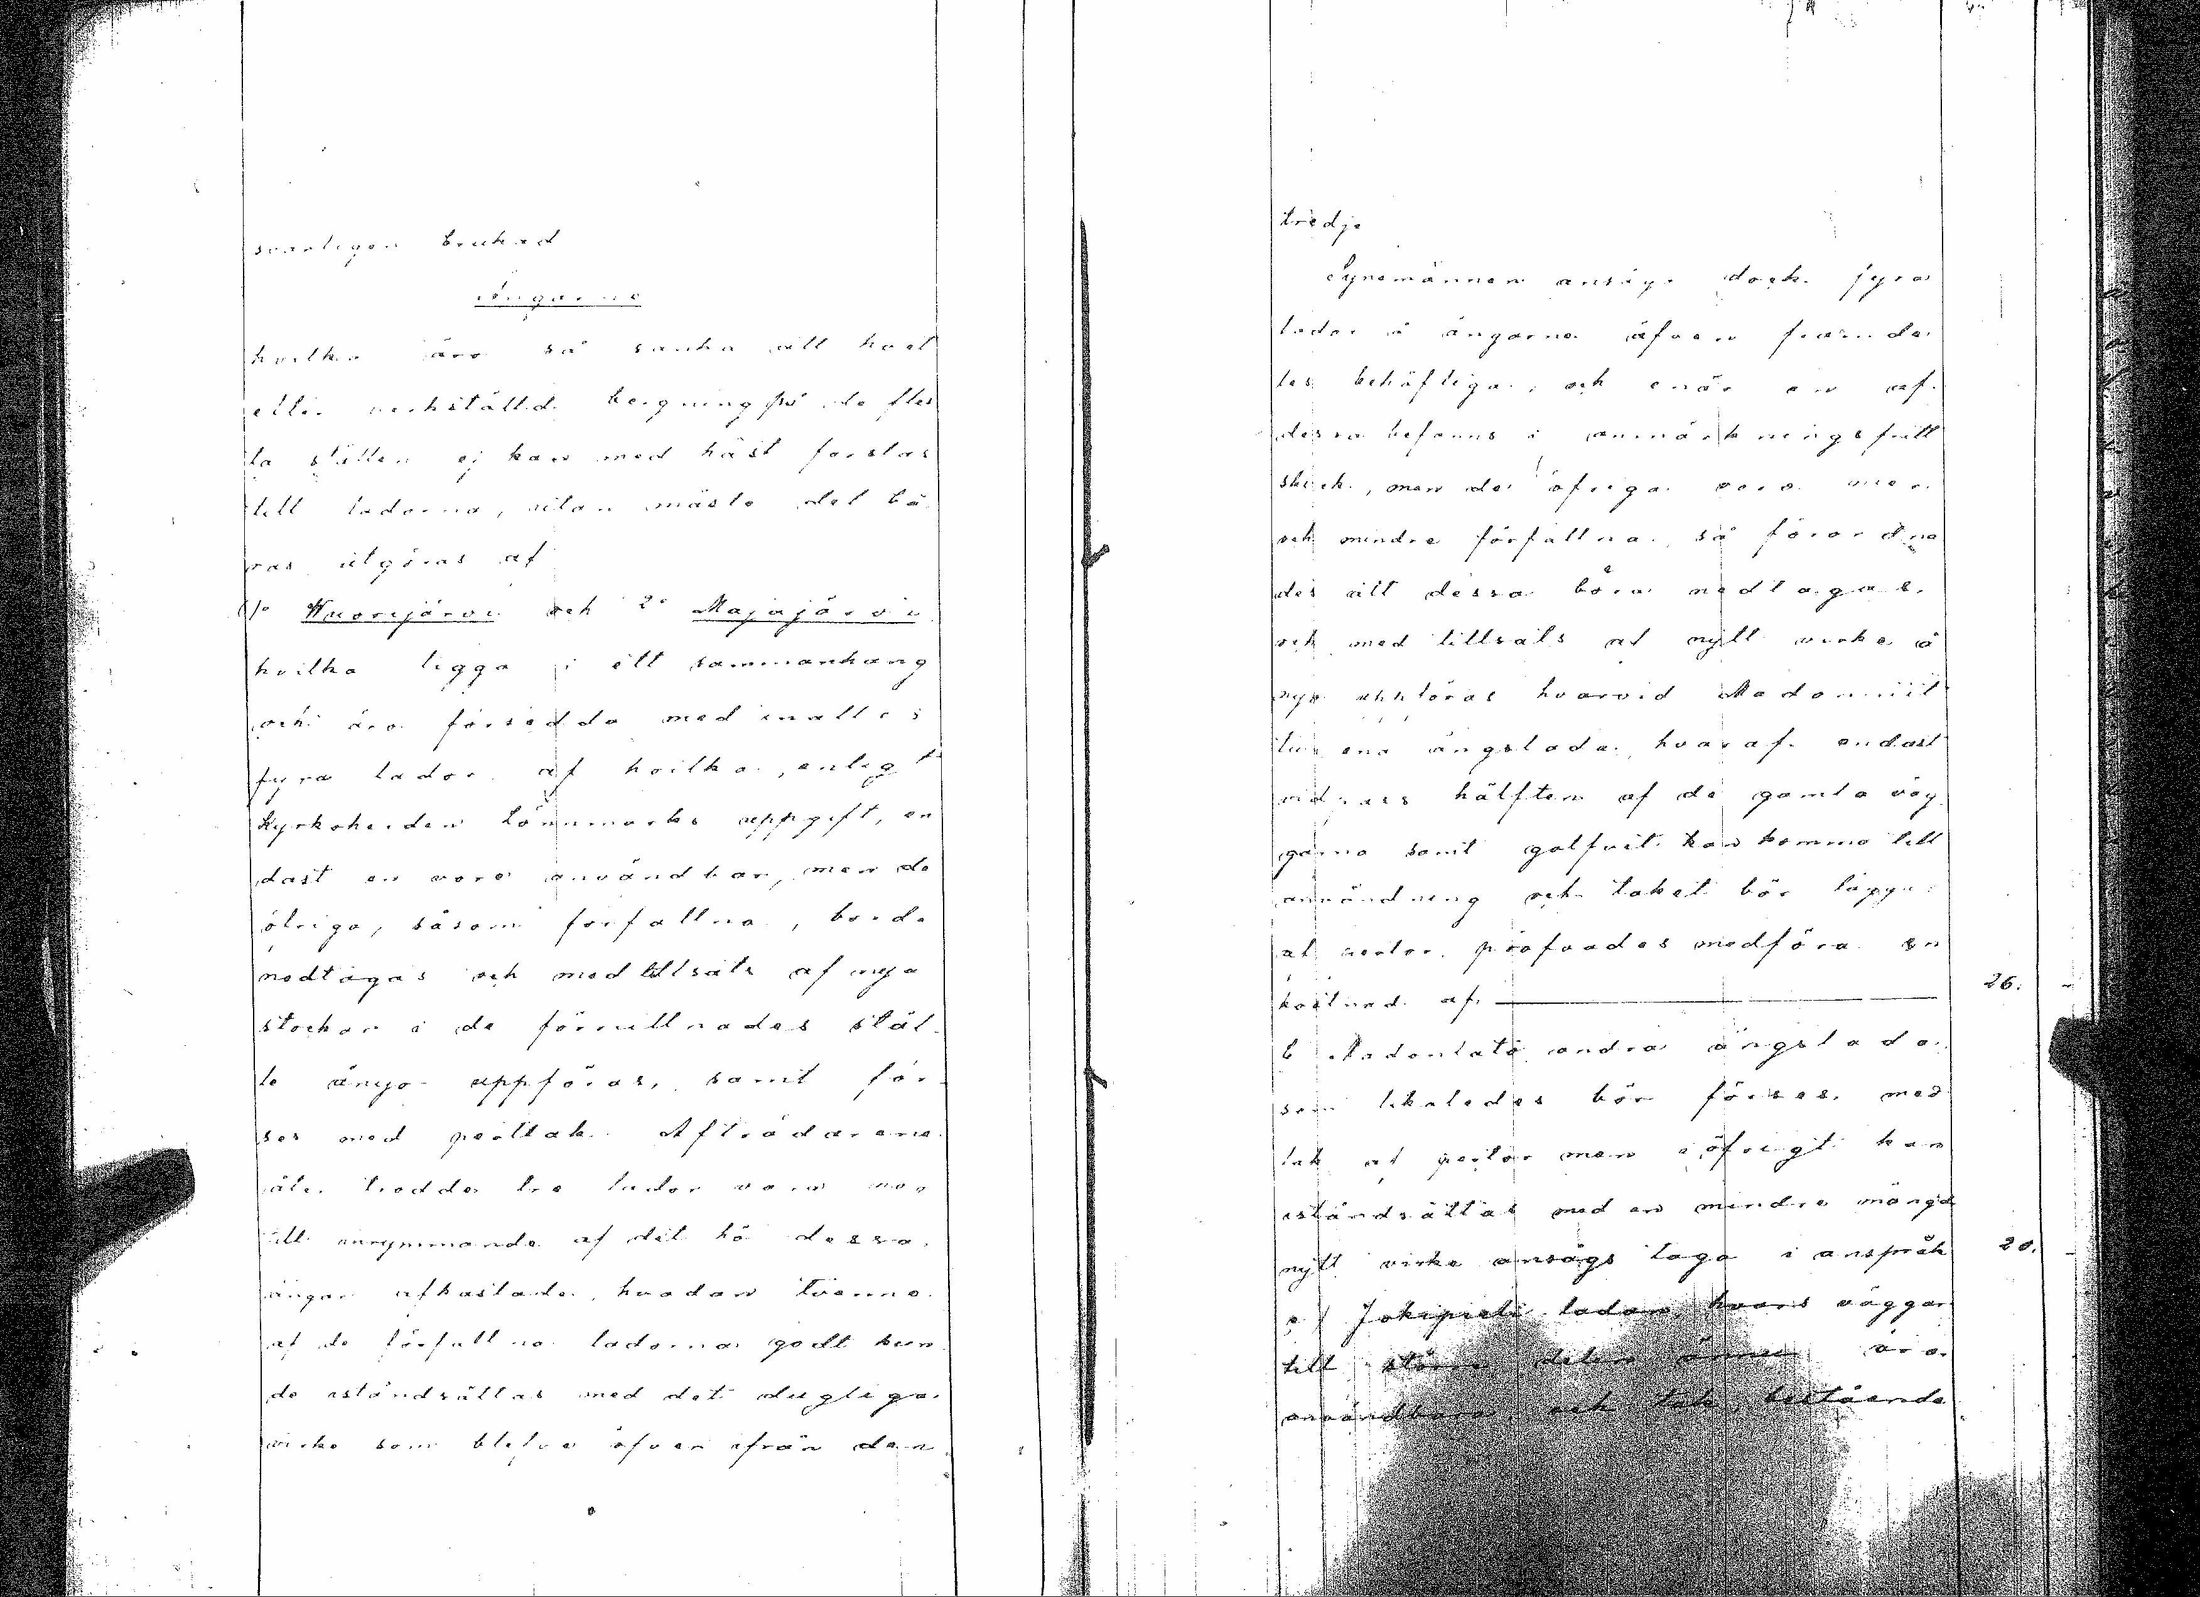 svarligen brukad
Ängarne
hvilka äro så sanka att höet
efter verkställd bergning på de fles
ta ställen ej kan med häst forslas
till ladorna, utan måste det bä
ras utgöras af
1o Wuorijärvi och 2o Majajärvi
hvilka ligga i ett sammanhang
och äro försedda med inalles
fyra lador af hvilka, enligt
Kyrkoherden Lönnmarks uppgift, en
dast en vore användbar, men de
öfriga, såsom förfallna, borde
nedtagas och med tillsats af nya
stockar i de förruttnades stäl-
le ånyo uppföras, samt för-
ses med perttak. Afträdarene
åter trodde tre lador vara nog
till inrymmande af det hö dessa
ängar afkastade, hvadan tvenne
af de förfallna ladorna godt kun
de iståndsättas med det dugliga
virke som blefve öfver ifrån den
tredje
Synemännen ansågo dock fyra
lador å ängarne äfven framde
les behöfliga, och enär en af
dessa befanns i anmärkningsfritt
skick, men de öfriga voro mer
och mindre förfallna, så förordna
des att dessa böra nedtagas,
och med tillsats af nytt virke å
nyo uppföras hvarvid Madonniit
tun ena ängslada, hvaraf endast
vidpass hälften af de gamla väg
garna samt golfvet kan komma till
användning och taket bör läggas
af pertor, pröfvades medföra en
kostnad af 26. -
b Madonlato andra ängslada
som likaledes bör förses med
tak af pertor men i öfrigt kan
iståndsättas med en mindre mängd
nytt virke ansågs taga i anspråk 20. -
c) Jokipieli ladan, hvars väggar
till större delen ännu äro
användbara och tak bestående